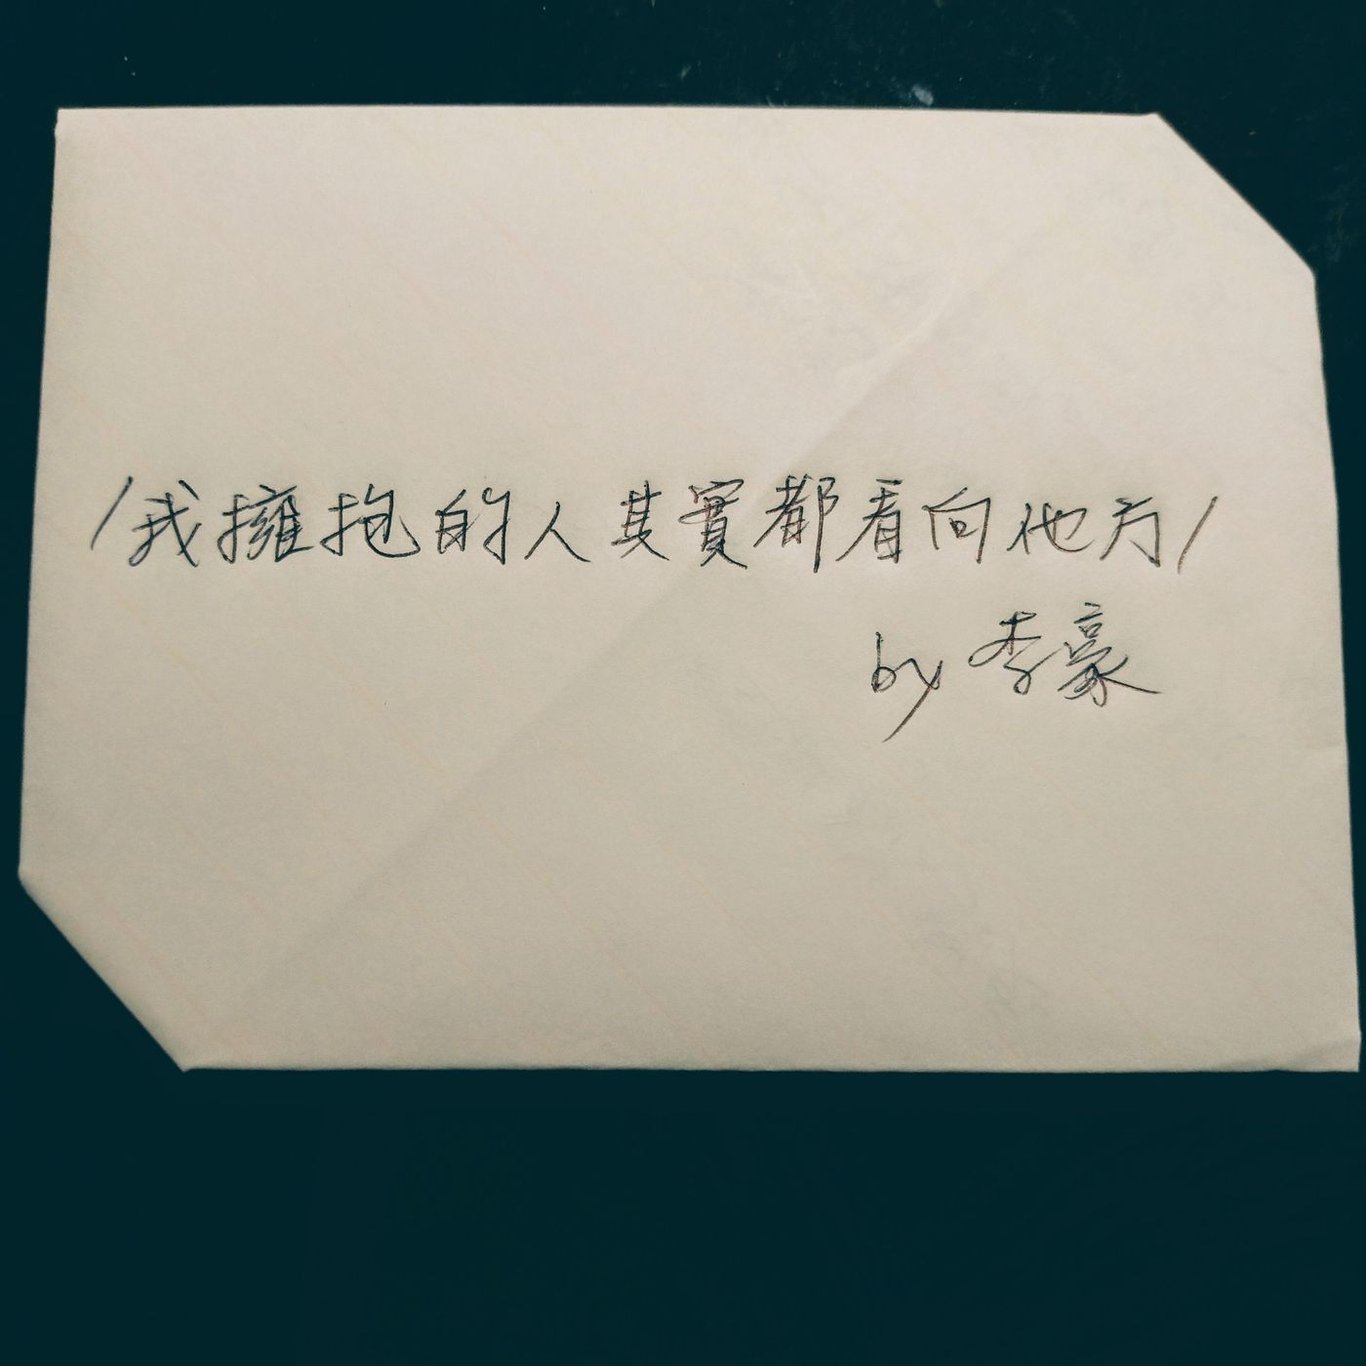 /我擁抱的人其實都看向他方/
by 李豪